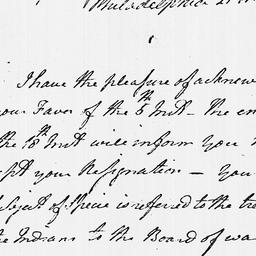 Philadelphia 21
I have the pleasure of acknow
your Favor of the 5th Inst - the en
the 18th Inst will inform you
ept your Resignation - you
Subject of Specie is referred to the tre
he Indians to the Board of wa